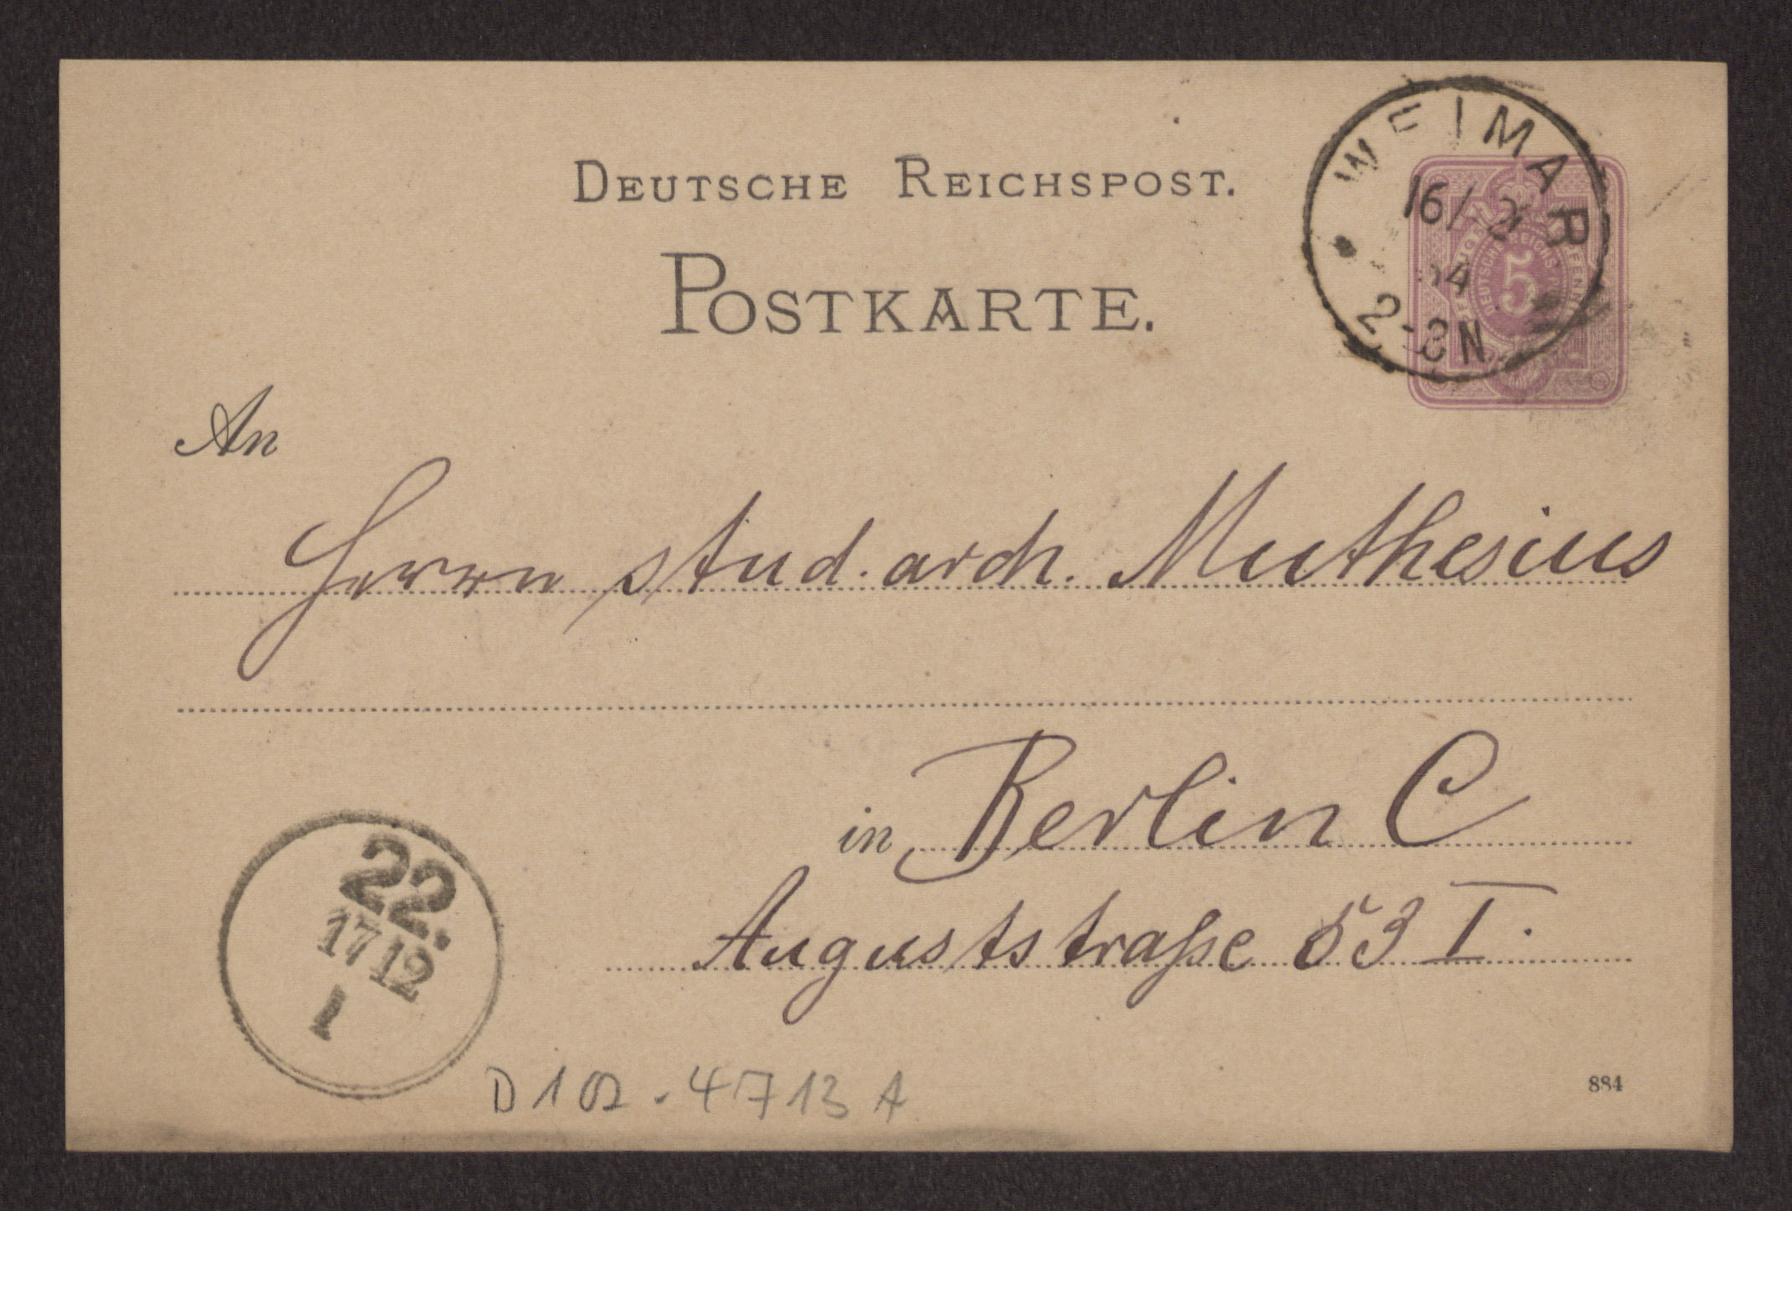 DEUTSCHE REICHSPOST.
POSTKARTE.
WEIMAR
16/
2-3N
5
An
Herrn stud. arch. Muthesius
in Berlin C
Auguststraße 53 I.
22.
17 12
1
D102-4713 A
884